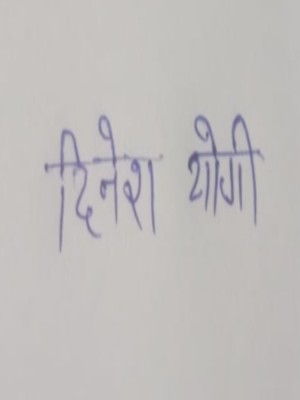 दिनेश योगी